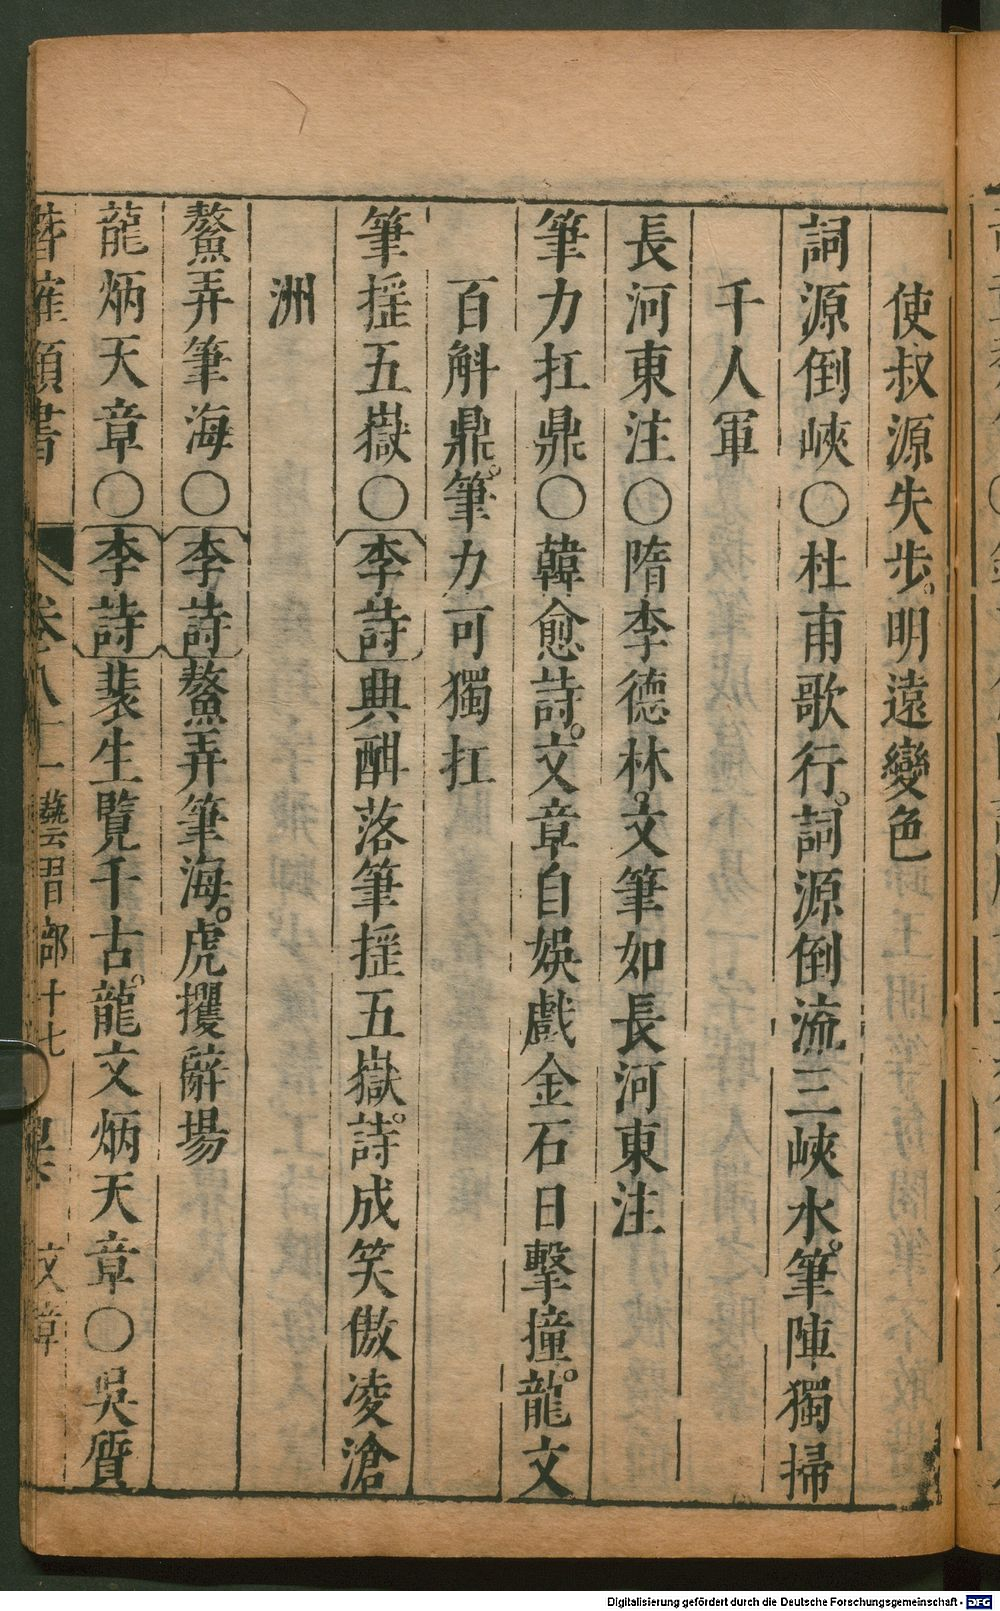 使叔源失步。明遠變色
詞源倒峽〇杜甫歌行。詞源倒流三峽水。筆陣獨掃
千人軍
長河東注〇隋李德林。文筆如長河東注
筆力扛鼎〇韓愈詩。文章自娛戲金石日擊撞。龍文
百斛鼎。筆力可獨扛
筆揺五嶽〇李詩興酣落筆揺五嶽。詩成笑傲凌滄
洲
鰲弄筆海〇李詩鰲弄筆海。虎攫辭場
龍炳天章〇李詩裴生覽千古。龍文炳天章〇吳質
卷八十一 藝習部十七 文章
Digitalisierung gefördert durch die Deutsche Forschungsgemeinschaft - DFG